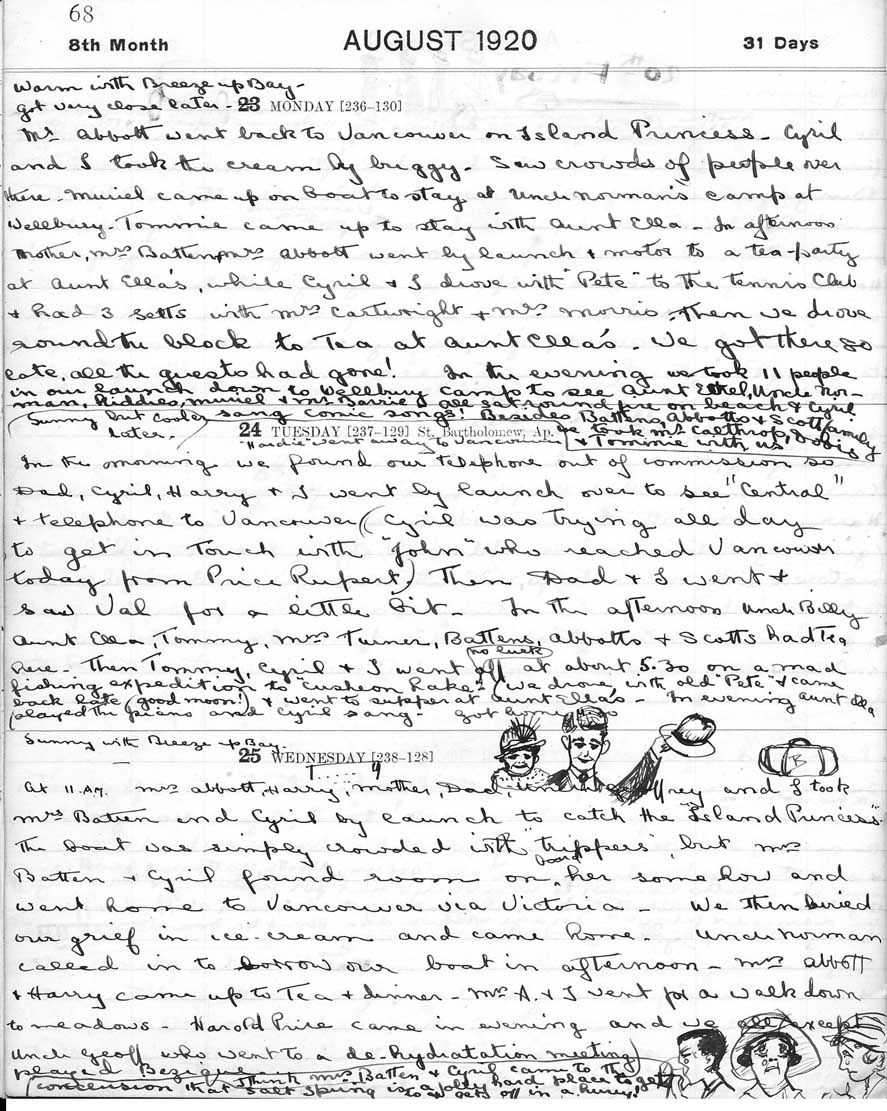 68
8th Month AUGUST 1920 31 Days
Warm with Breeze up Bay -
got very close later - 23 MONDAY [236-130]
Mr Abbott went back to Vancouver on Island Princess - Cyril
and I took the cream by buggy - Saw crowds of people over
there - Muriel came up on boat to stay at Uncle Norman's camp at
Wellbury - Tommie came up to stay with Aunt Ella - In afternoon
Mother, Mrs Batten, Mrs Abbott went by launch & motor to a tea-party
at Aunt Ella's, while Cyril & I drove with "Pete" to the tennis Club
& had 3 setts with Mrs Cartwright & Mrs Morris. Then we drove
round the block to Tea at Aunt Ella's - We got there so
late, all the guests had gone! In the evening we took 11 people
in our launch down to Wellbury camp to see Aunt Ethel, Uncle Nor-
man, Kiddies, Muriel & all sat round fire on beach & Cyril
sang comic songs! Besides Battens, Abbotts & Scott family
we took Mr Calthrop, Dobie
& Tommie with us
Sunny but cooler
later.
24 TUESDAY [237-129] St. Bartholomew, Ap.
"Hardie" went away to Vancouver
In the morning we found our telephone out of commission so
Dad, Cyril, Harry & I went by launch over to see "Central"
& telephone to Vancouver (Cyril was trying all day
to get in touch with "John" who reached Vancouver
today from Price Rupert) Then Dad & I went &
saw Val for a little bit - In the afternoon Uncle Billy
Aunt Ella, Tommy, Mrs Turner, Battens, Abbotts & Scotts had Tea
here - Then Tommy, Cyril & I went off at about 5.30 on a mad
no luck
fishing expedition to "Cusheon Lake" (we drove with old "Pete" & came
back late (good moon!) & went to supper at Aunt Ella's - In evening Aunt Ella
played the piano and Cyril sang - got home
Sunny with Breeze up Bay.
25 WEDNESDAY [238-128]
B
At 11 A.M. Mrs Abbott, Harry, Mother, Dad, and I took
Mrs Batten and Cyril by launch to catch the "Island Princess".
The boat was simply crowded with "trippers", but Mrs
Batten & Cyril found room on board her somehow and
went home to Vancouver via Victoria - We then buried
our grief in ice-cream and came home. Uncle Norman
called in to borrow our boat in afternoon - Mrs Abbott
& Harry came up to Tea & dinner - Mrs A. & I went for a walk down
to meadows - Harold Price came in evening and we all except
Uncle Geoff who went to a de-hydratation meeting)
played Bezique. Think Mrs Batten & Cyril came to the
concension that Salt Spring is a jolly hard place to get
to & gets off in a hurry!